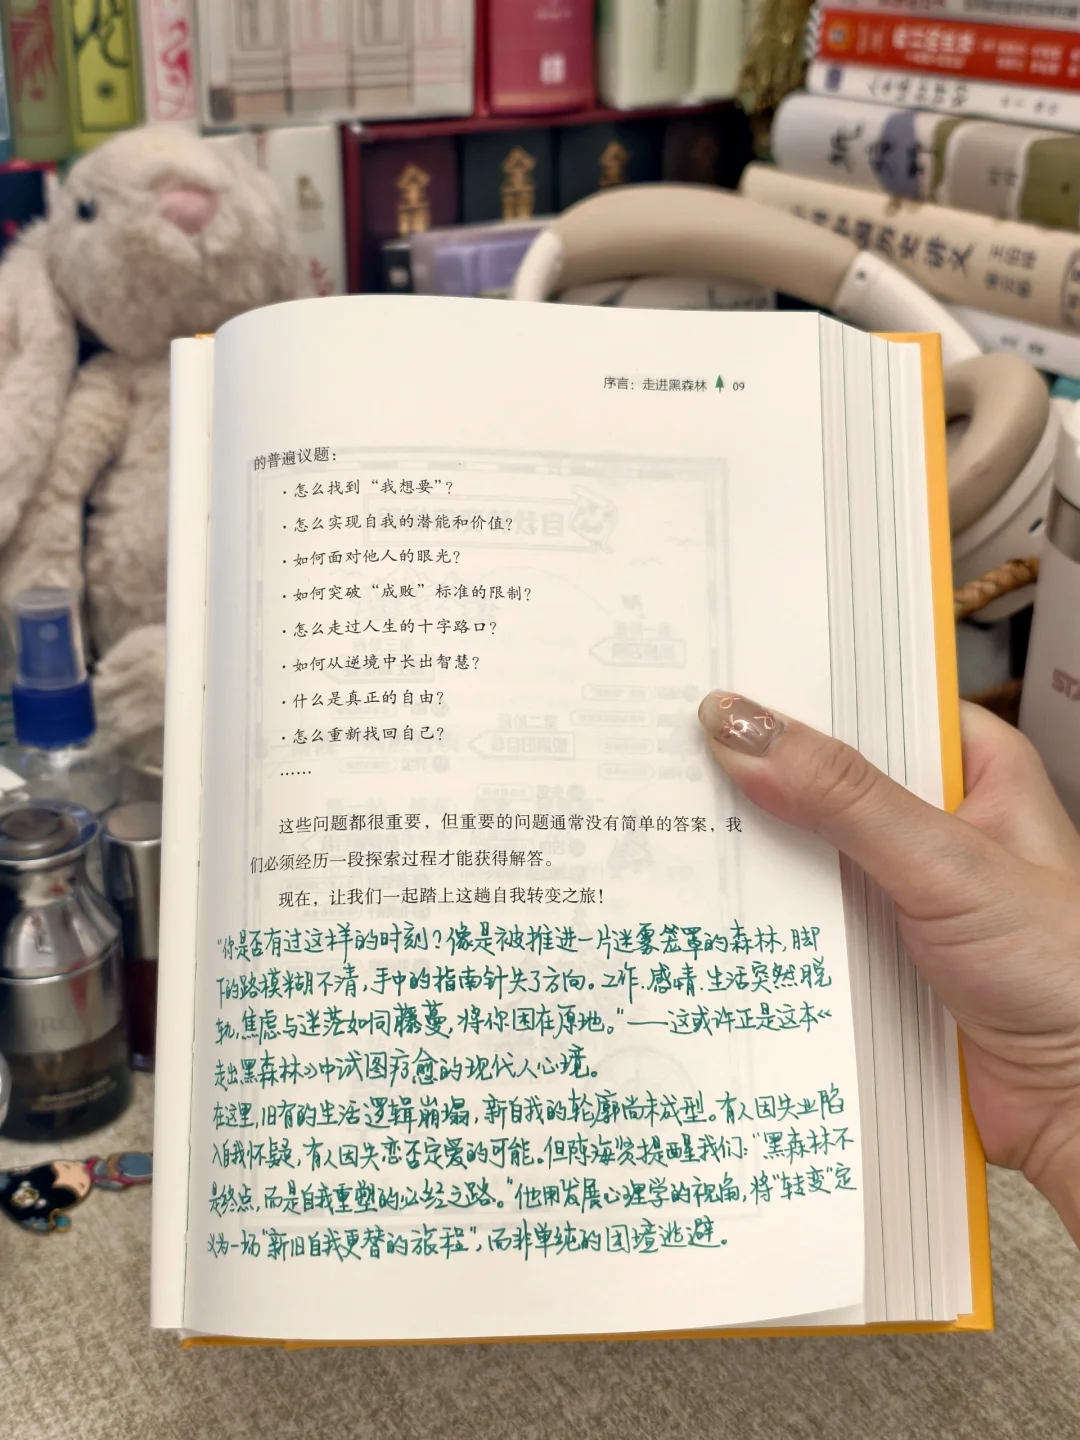 全
全
全
序言：走进黑森林 09
的普遍议题：
·怎么找到“我想要”？
·怎么实现自我的潜能和价值？
·如何面对他人的眼光？
·如何突破“成败”标准的限制？
·怎么走过人生的十字路口？
·如何从逆境中长出智慧？
·什么是真正的自由？
·怎么重新找回自己？
……
这些问题都很重要，但重要的问题通常没有简单的答案，我
们必须经历一段探索过程才能获得解答。
现在，让我们一起踏上这趟自我转变之旅！
“你是否有过这样的时刻？像是被推进一片迷雾笼罩的森林，脚
下的路模糊不清，手中的指南针失了方向。工作、感情、生活突然脱
轨，焦虑与迷茫如同藤蔓，将你困在原地。”——这或许正是这本《
走出黑森林》中试图疗愈的现代人心境。
在这里，旧有的生活逻辑崩塌，新自我的轮廓尚未成型。有人因失业陷
入自我怀疑，有人因失恋否定爱的可能。但陈海贤提醒我们：“黑森林不
是终点，而是自我重塑的必经之路。”他用发展心理学的视角，将“转变”定
义为一场“新旧自我更替的旅程”，而非单纯的困境逃避。